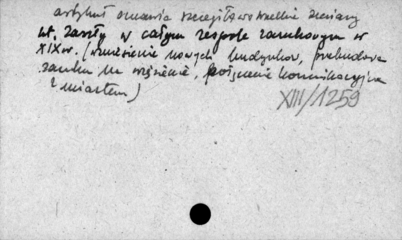 artykuł omawia szczegółowo wszelkie zmiany
kt. zaszły w całym zespole zamkowym w
XIXw. (wzniesienie nowych budynków, przebudowa
zamku na więzienie, połączenie komunikacyjne
z miastem)
XIII/1259